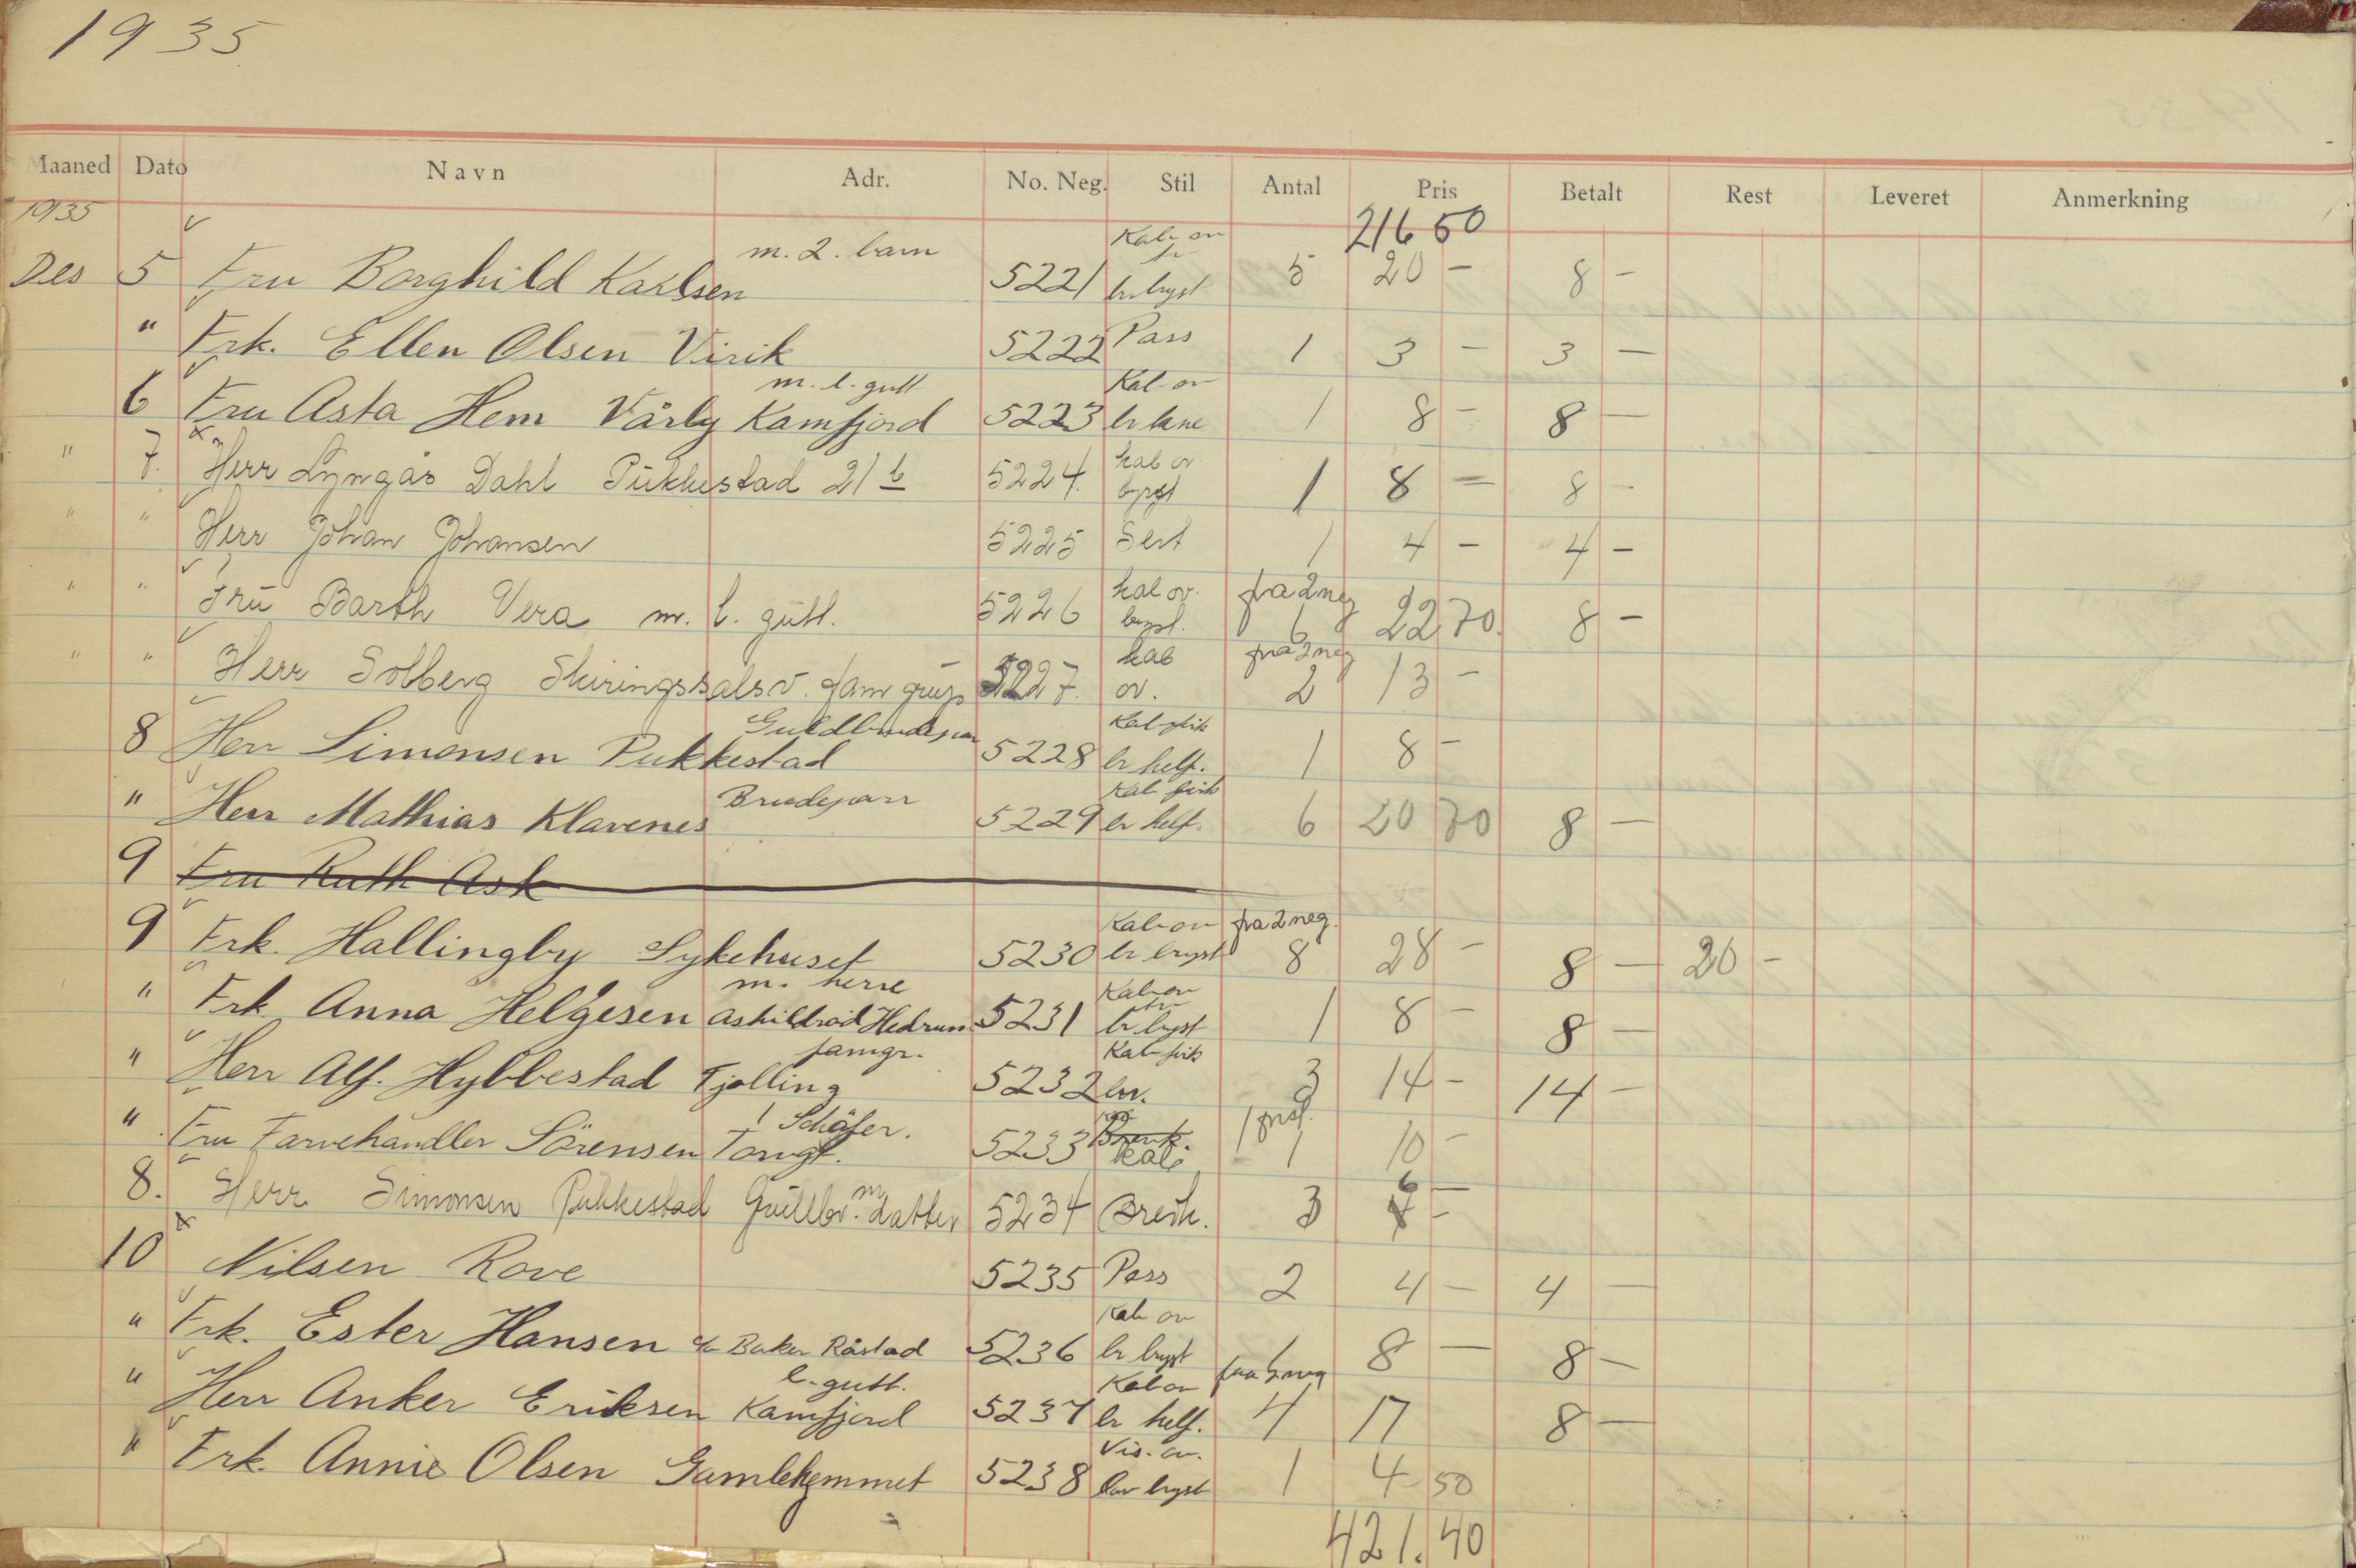 1935
Maaned Dato Navn Adr. No. Neg. Stil Antal Pris Betalt Rest Leveret Anmerkning
1935 216 50
m. 2. barn Kab ov
Des 5 Fru Borghild Karlsen 5221 br bryst 5 20 - 8 -
" Frk. Ellen Olsen Virik 5222 Pass 1 3 - 3 -
m. l. gutt Kab ov
6 Fru Asta Hem Vårly Kamfjord 5223 br kne 1 8 - 8 -
" 7. Herr Lyngås Dahl Pukkestad 21 b 5224. kab ov bryst 1 8 - 8 -
" " Herr Johan Johansen 5225 Sert 1 4 - 4 -
" " Fru Barth Vera m. l. gutt. 5226 kab ov. bryst. fra 2 neg 6 22 70. 8 -
" " Herr Solberg Skiringssalsv. fam grup 5227. kab ov. fra 2 neg 2 13 -
Guldbrudepar Kab-
8 Herr Simonsen Pukkestad 5228 br helf. 1 8 -
Brudeparr Kab
" Herr Mathias Klavenes 5229 br helf. 6 20 70 8 -
9 Fru Ruth Ask
Kab ov fra 2 neg.
9 Frk. Hallingby Sykehuset 5230 br bryst 8 28 - 8 - 20 -
m. herre Kab ov
" Frk. Anna Helgesen Askildrød Hedrum 5231 br bryst 1 8 - 8 -
famgr. Kab
" Herr Alf. Hybbestad Tjølling 5232 br. 3 14 - 14 -
1 Schäfer. 1 prøf.
" Fru Farvehandler Sörensen Torvgt. 5233 Brevk. kab 1 10 -
8. Herr Simonsen Pukkestad Gullbr. m datter 5234 Brevk. 3 6 -
10 Nilsen Rove 5235 Pass 2 4 - 4 -
Kab ov
" Frk. Ester Hansen c/o Baker Råstad 5236 br bryst 1 8 - 8 -
l. gutt. Kab ov fra 2 neg
" Herr Anker Eriksen Kamfjord 5237 br helf. 4 17 8 -
Vis. ov.
" Frk. Annie Olsen Gamlehjemmet 5238 br bryst 1 4 50
421.40